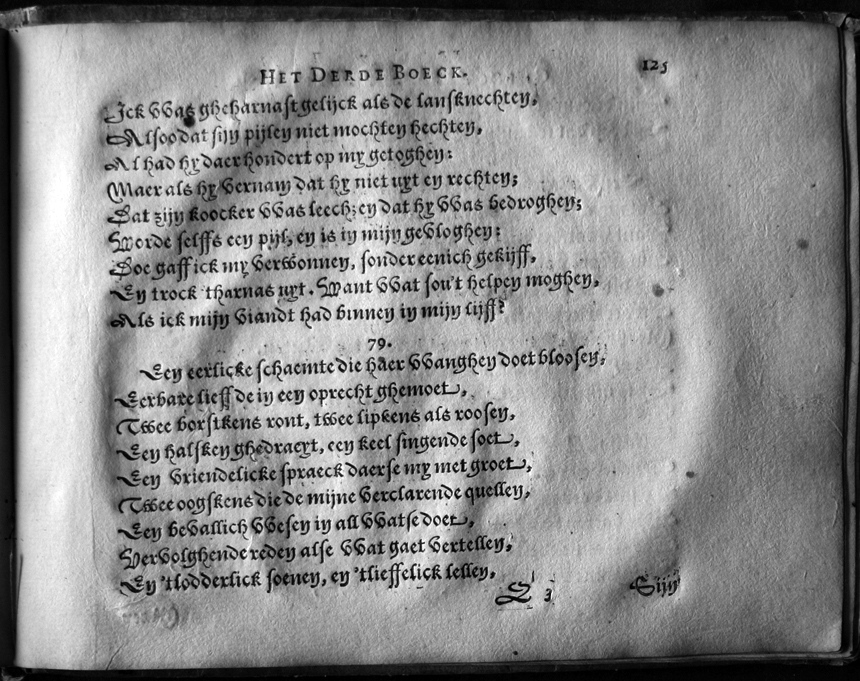 HET DERDE BOECK. 125
Ick VVas gheharnast gelijck als de lansknechten,
Alsoo dat sijn pijlen niet mochten hechten,
Al had hy daer hondert op my getoghen:
Maer als hy vernam dat hy niet uyt en rechten;
Dat zijn koocker VVas leech; en dat hy VVas bedroghen;
Worde selffs een pijl, en is in mijn gevloghen:
Doe gaff ick my verwonnen, sonder eenich gekijff,
En trock tharnas uyt. Want VVat sou't helpen moghen,
Als ick mijn viandt had binnen in mijn lijff?
79.
Een eerlicke schaemte die haer VVanghen doet bloosen,
Eerbare lieffde in een oprecht ghemoet,
Twee borstkens ront, twee lipkens als roosen,
Een halsken ghedraeyt, een keel singende soet,
Een vriendelicke spraeck daerse my met groet,
Twee oogskens die de mijne verclarende quellen,
Een bevallich VVesen in all VVatse doet,
Vervolghende reden alse VVat gaet vertellen,
En 'tlodderlick soenen, en 'tlieffelick lellen,
Q 3 Sijn